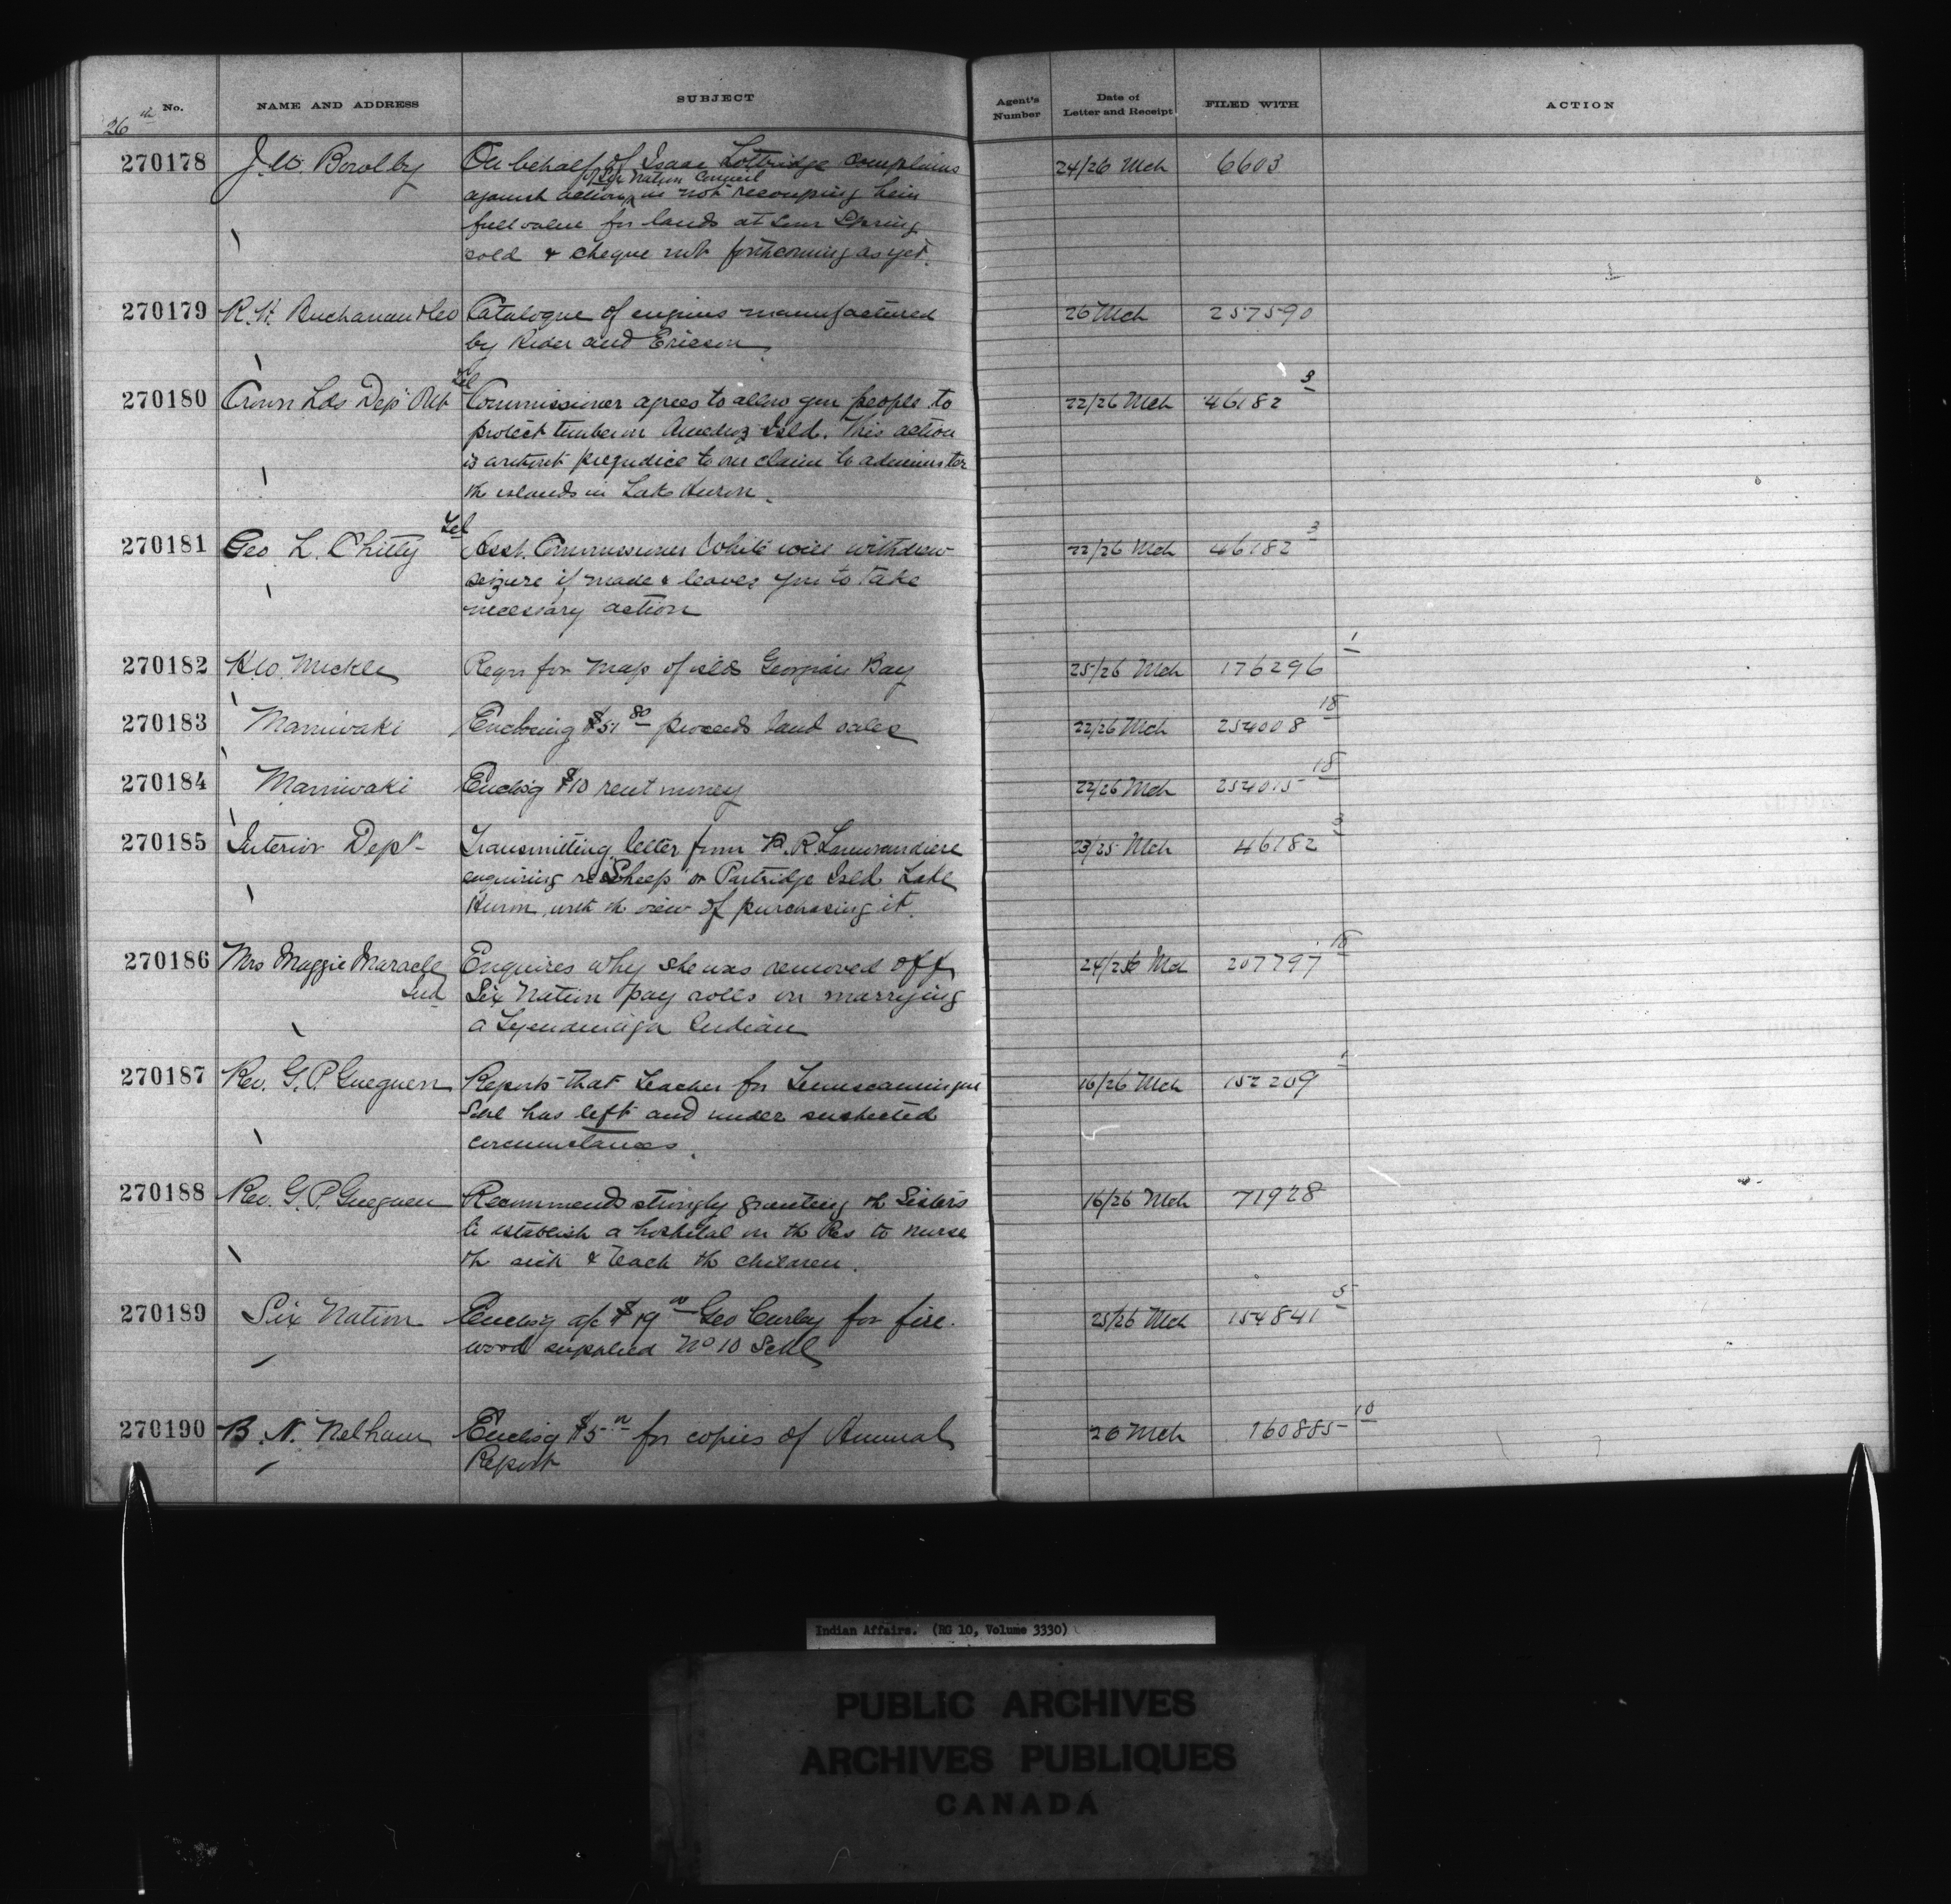 No. NAME AND ADDRESS SUBJECT Agent's Number Date of Letter and Receipt FILED WITH ACTION
26th
270178 J. W. Bowlby On behalf of Isaac Lottridge complains 24/26 Mch 6603
of Six Nation Council
against action in not recouping him
full value for lands at Sour Spring
sold & cheque not forthcoming as yet.
270179 R. H. Buchanan & Co Catalogue of engines manufactured 26 Mch 257590
by Rider and Ericson
270180 Crown Lds Dept Ont Tel Commissioner agrees to allow your people to 22/26 Mch 46182 3
protect timber on Isld. This action
is without prejudice to our claim to administer
the islands in Lake Huron.
270181 Geo. L. Chitty Tel Asst. Commissioner White will withdraw 22/26 Mch 46182 3
seizure if made & leaves you to take
necessary action
270182 H. W. Mickle Reqrs for map of islds Georgian Bay 25/26 Mch 176296 1
270183 Maniwaki Enclosing $51 80 proceeds land sales 22/26 Mch 254008 18
270184 Maniwaki Enclosg $10 rent money 22/26 Mch 254015 18
270185 Interior Dept Transmitting letter from R. Lamorandiere 23/25 Mch 46182 3
enquiring re "Sheep" or Partridge Isld Lake
Huron, with the view of purchasing it.
270186 Mrs Maggie Maracle Enquires why she was removed off 24/26 Mch 207797 18
Ind Six Nation pay rolls on marrying
a Tyendinaga Indian
270187 Rev. G. P. Gueguen Reports that teacher for Temiscamingue 16/26 Mch 152209 1
Schl has left and under suspected
circumstances.
270188 Rev. G. P. Gueguen Recommends strongly granting the Sisters 16/26 Mch 71928
to establish a hospital on the Res to nurse
the sick & teach the children.
270189 Six Nation Enclosg a/c $19 00 Geo Curley for fire 25/26 Mch 154841 5
wood supplied No 10 Schl
270190 B. N. Nelham Enclosg $5 00 for copies of Annual 26 Mch 160885 10
Report
Indian Affairs. (RG 10, Volume 3330)
PUBLIC ARCHIVES
ARCHIVES PUBLIQUES
CANADA